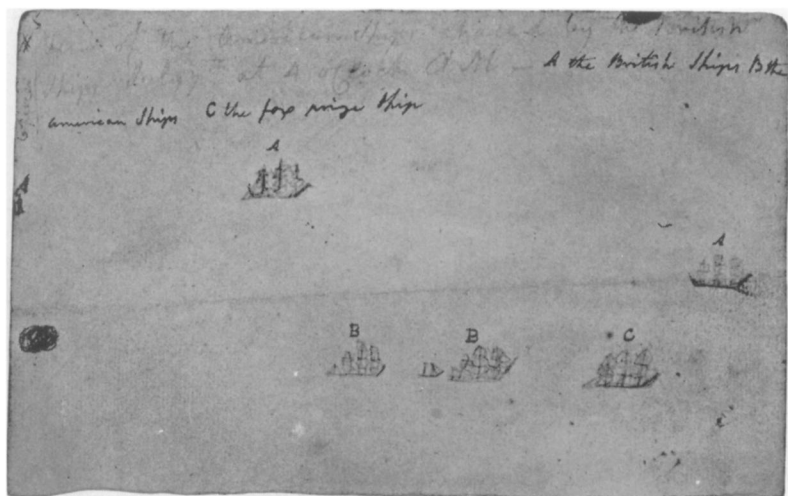 of the American Ships chased by the British
Ships at 4 o'Clock A M — A the British Ships B the
american Ships C the fox prize Ship
A
A
A
B B C